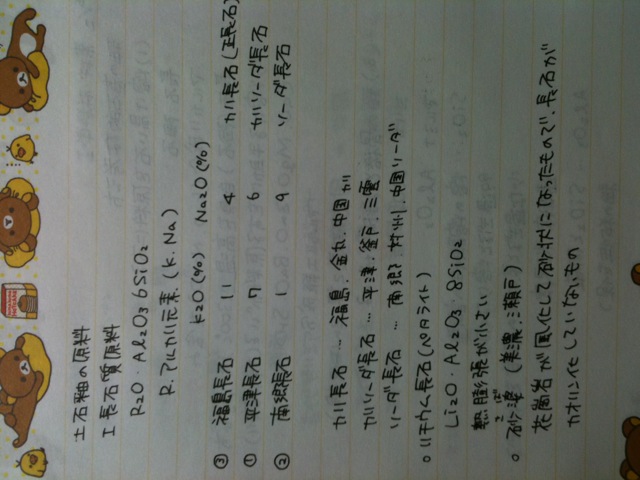 土石釉の原料
I 長石質原料
R2O・Al2O3 6SiO2
R.アルカリ元素.(K.Na)
K2O(%) Na2O(%)
③ 福島長石 11 4 カリ長石(正長石)
① 平津長石 7 6 カリソーダ長石
② 南郷長石 1 9 ソーダ長石
カリ長石 … 福島.金丸.中国カリ
カリソーダ長石 … 平津.釜戸.三雲
ソーダ長石 … 南郷.対州.中国ソーダ
○ リチウム長石(ペタライト)
Li2O・Al2O3・8SiO2
熱膨張が小さい
さば
○ 砂婆 (美濃.瀬戸)
花崗岩が風化して砂状になったもので.長石が
カオリン化していないもの